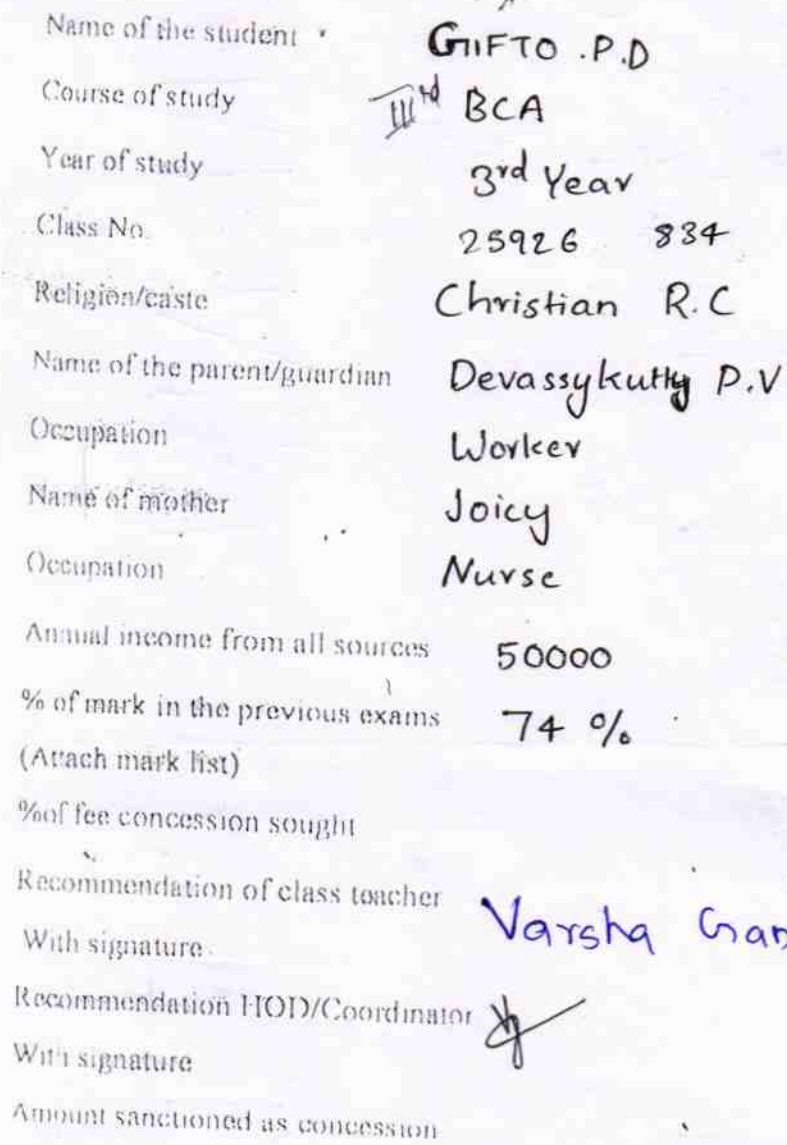 Name of the student GIFTO .P.D
Course of study IIIrd BCA
Year of study 3rd Year
Class No. 25926 834
Religion/caste Christian R.C
Name of the parent/guardian Devassykutty P.V
Occupation Worker
Name of mother Joicy
Occupation Nurse
Annual income from all sources 50000
% of mark in the previous exams 74 %
(Attach mark list)
%of fee concession sought
Recommendation of class teacher
With signature Varsha
Recommendation HOD/Coordinator
With signature
Amount sanctioned as concession